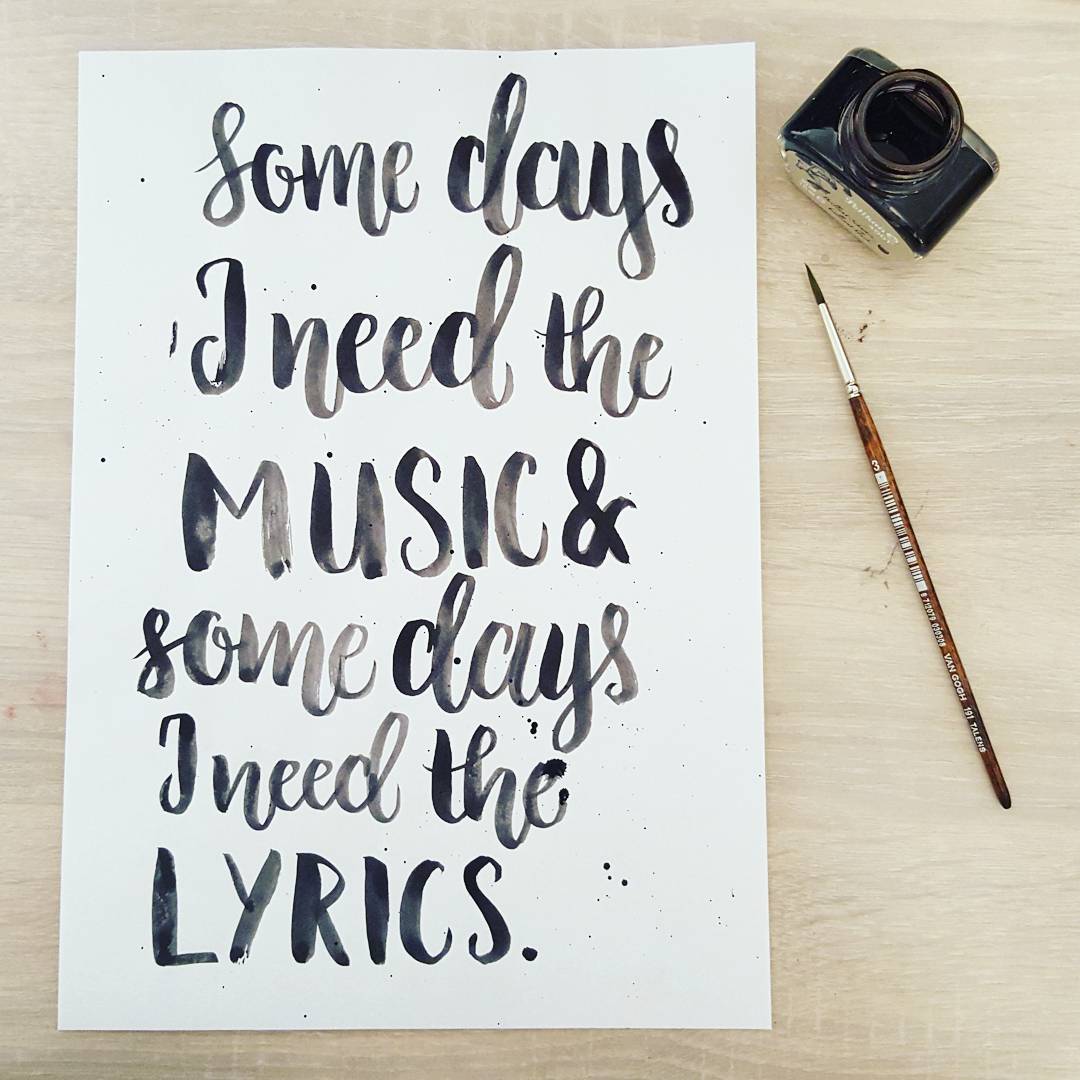 Some days
I need the
MUSIC &
some days
I need the
LYRICS.
3
8 712079 050306 VAN GOGH 191 TALENS